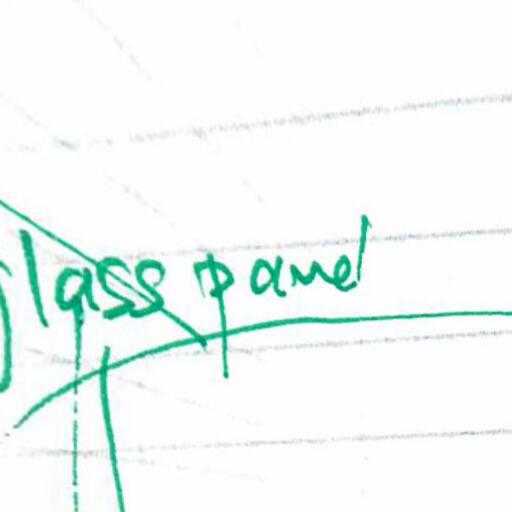 glass panel